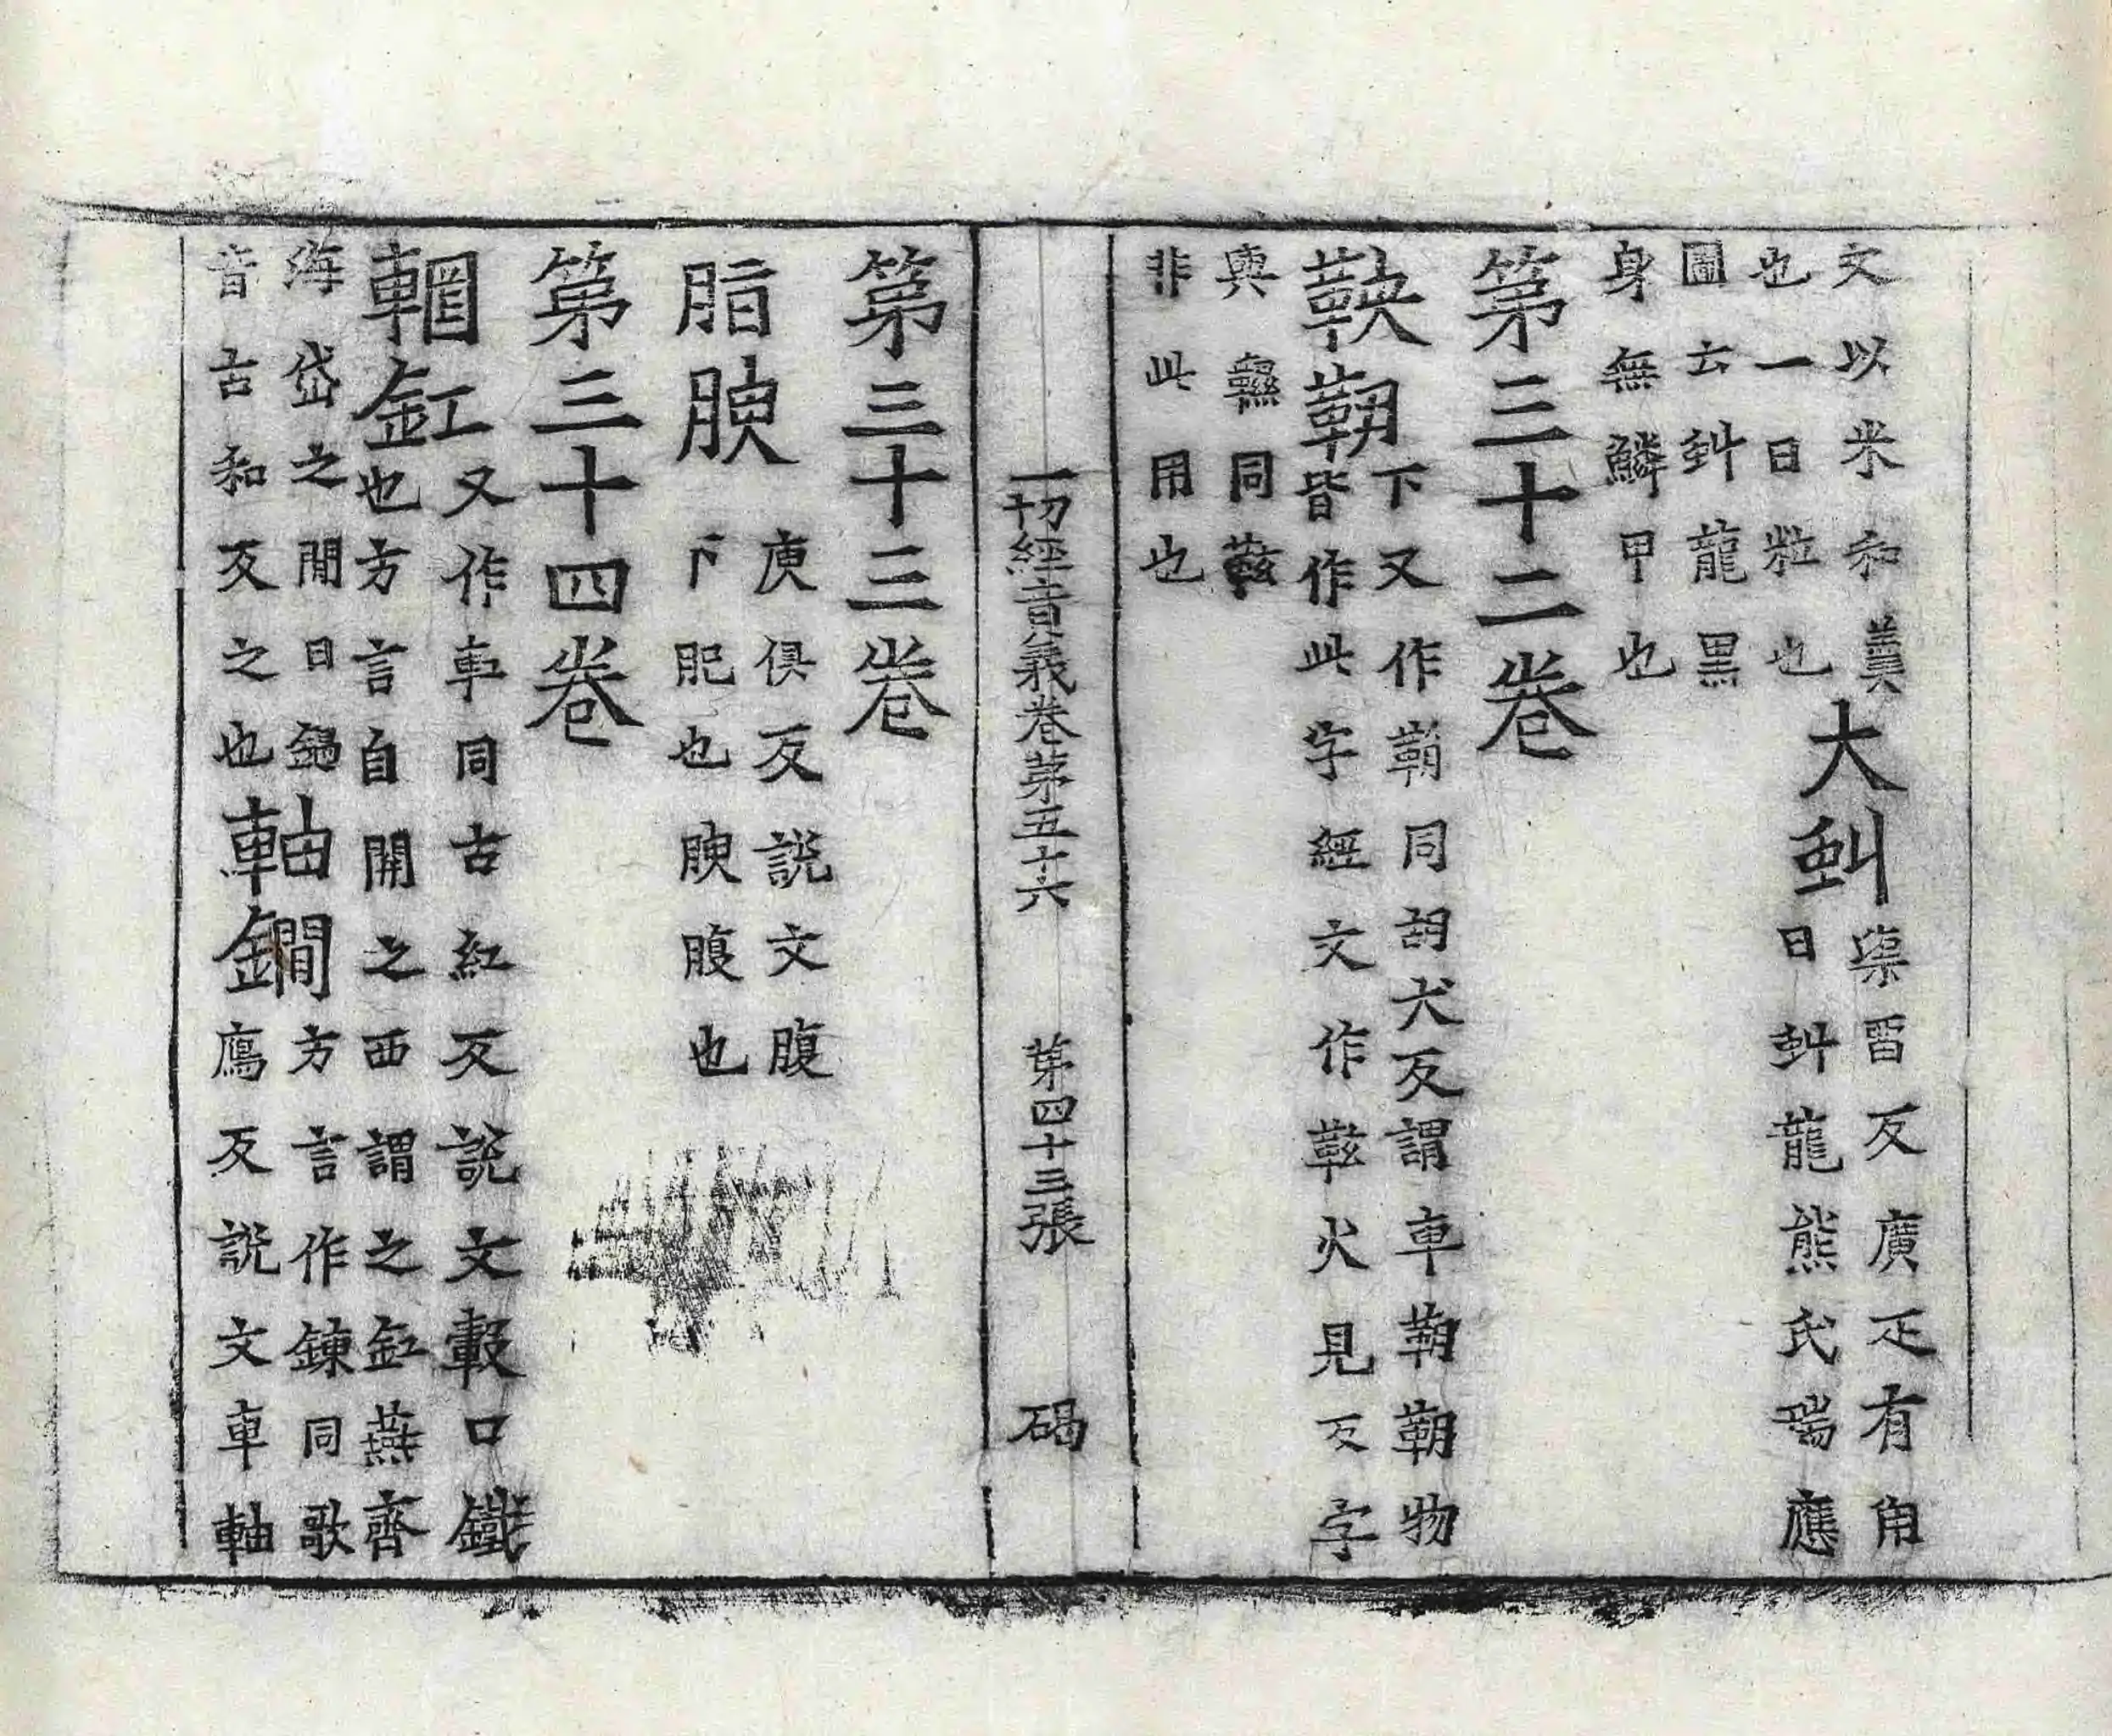 文以米和羹
也一曰粒也
大虯
渠畱反廣疋有角
曰虯龍熊氏瑞應
圖云虯龍黑
身無鱗甲也
第三十二卷
鞅靷
下又作䩙同胡犬反謂車鞙靷物
皆作此字經文作䩭火見反字
與韅同䩭
非此用也
第三十三卷
脂腴
庾俱反說文腹
下肥也腴腹也
第三十四卷
輞釭
又作車同古紅反說文轂口鐵
也方言自關之西謂之釭燕齊
海岱之閒曰鍋
音古和反之也
軸鐧
方言作鍊同歌
鴈反說文車軸
一切經音義卷第五十六 第四十三張 碣